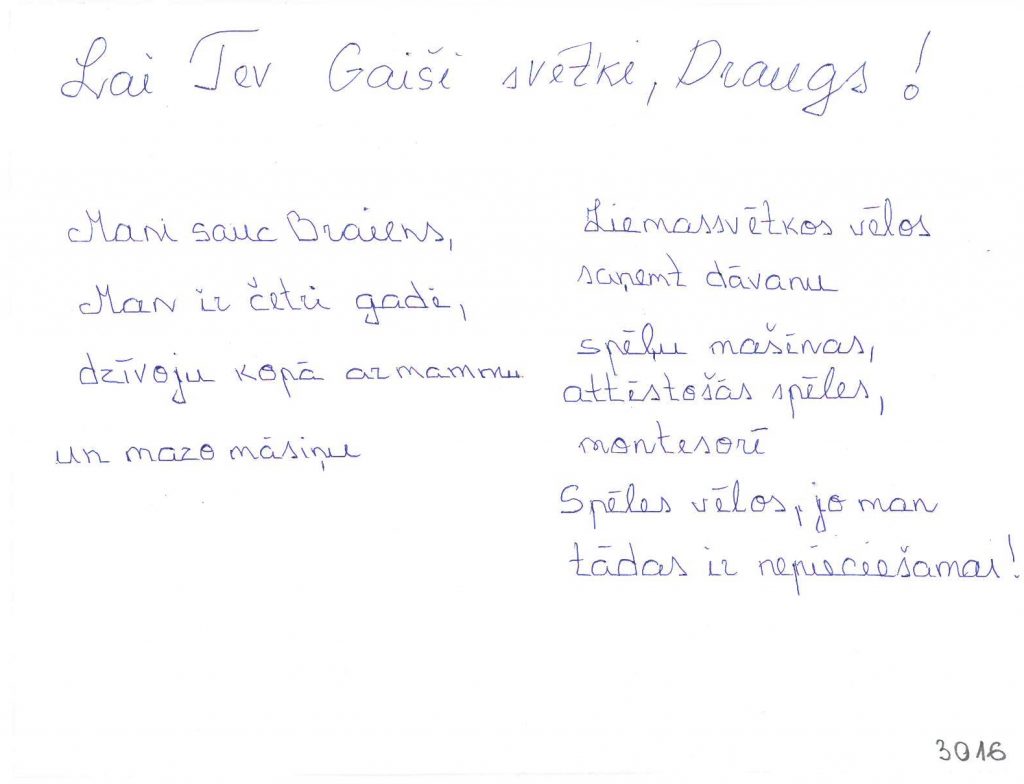 Lai Tev Gaiši svētki, Draugs!
Mani sauc Braiens,
Man ir četri gadi,
dzīvoju kopā ar mammu
un mazo māsiņu
Ziemassvētkos vēlos
saņemt dāvanu
spēļu mašīnas,
attīstošās spēles,
montesorī
Spēles vēlos, jo man
tādas ir nepieciešamas!
3016